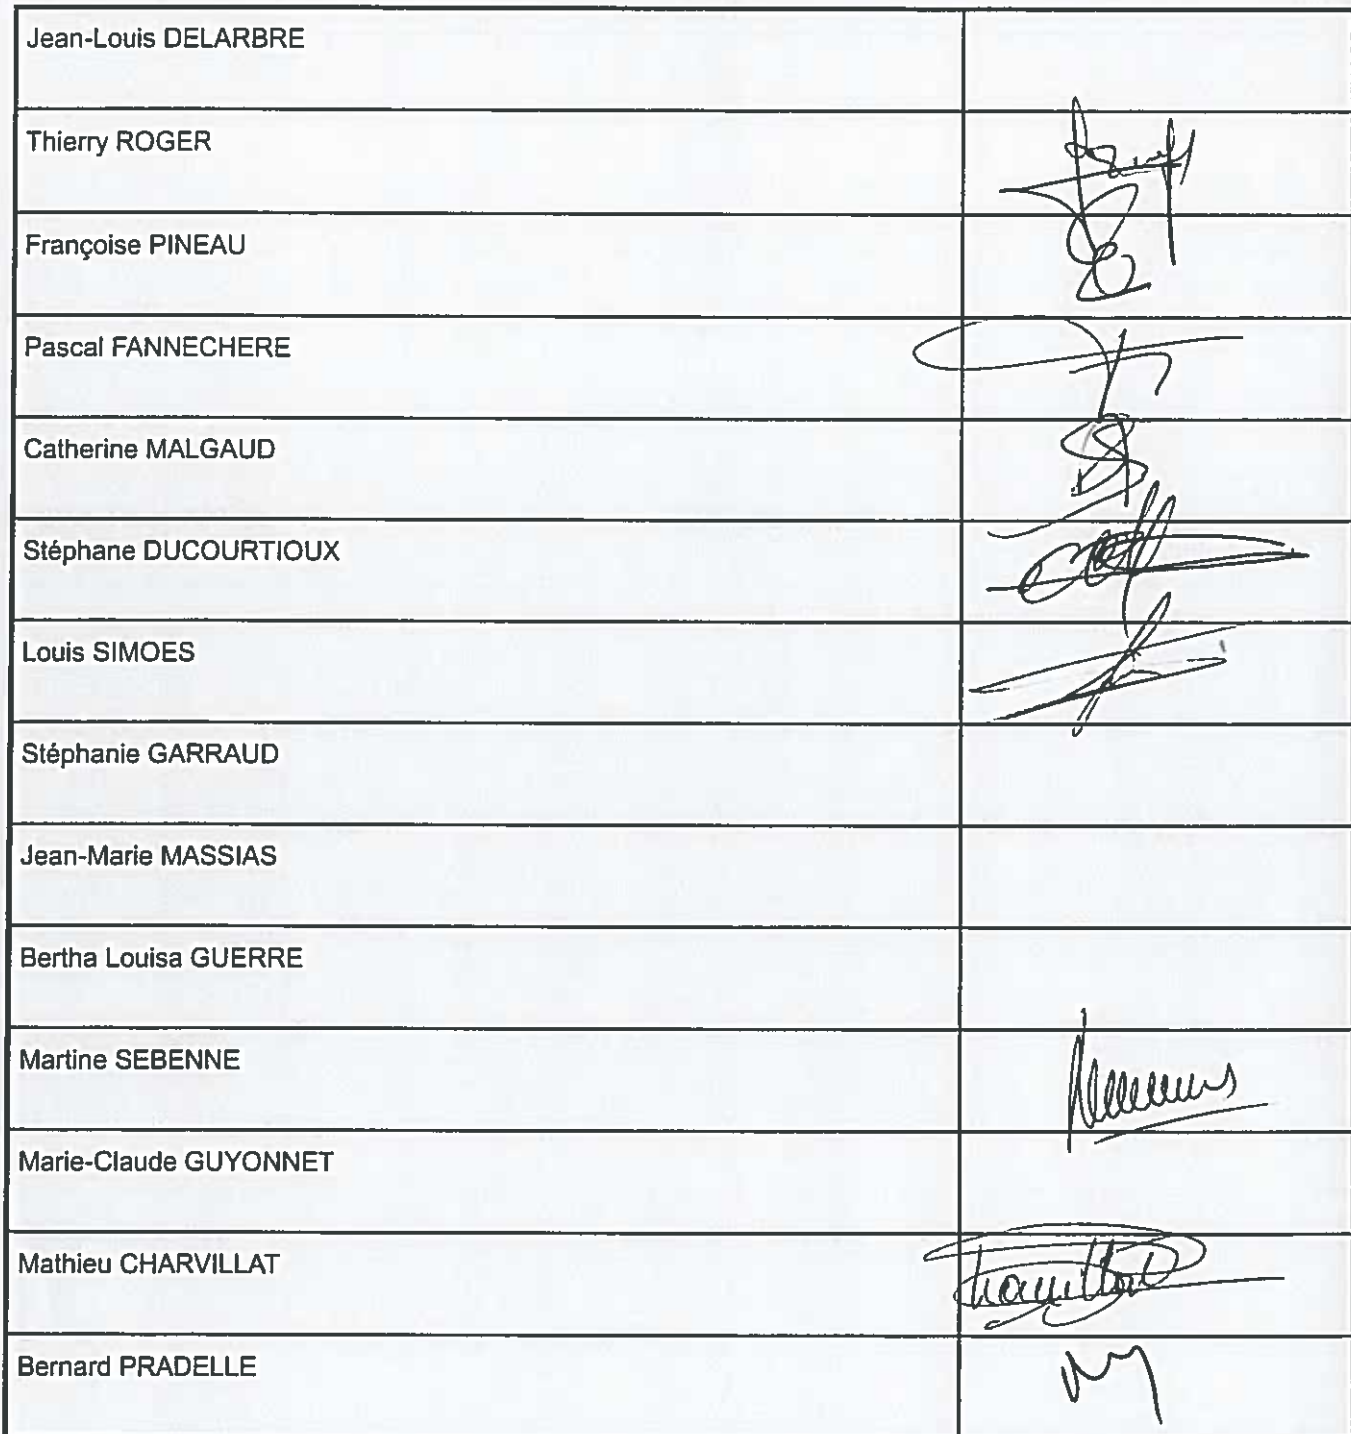 Jean-Louis DELARBRE
Thierry ROGER
Françoise PINEAU
Pascal FANNECHERE
Catherine MALGAUD
Stéphane DUCOURTIOUX
Louis SIMOES
Stéphanie GARRAUD
Jean-Marie MASSIAS
Bertha Louisa GUERRE
Martine SEBENNE
Marie-Claude GUYONNET
Mathieu CHARVILLAT
Bernard PRADELLE